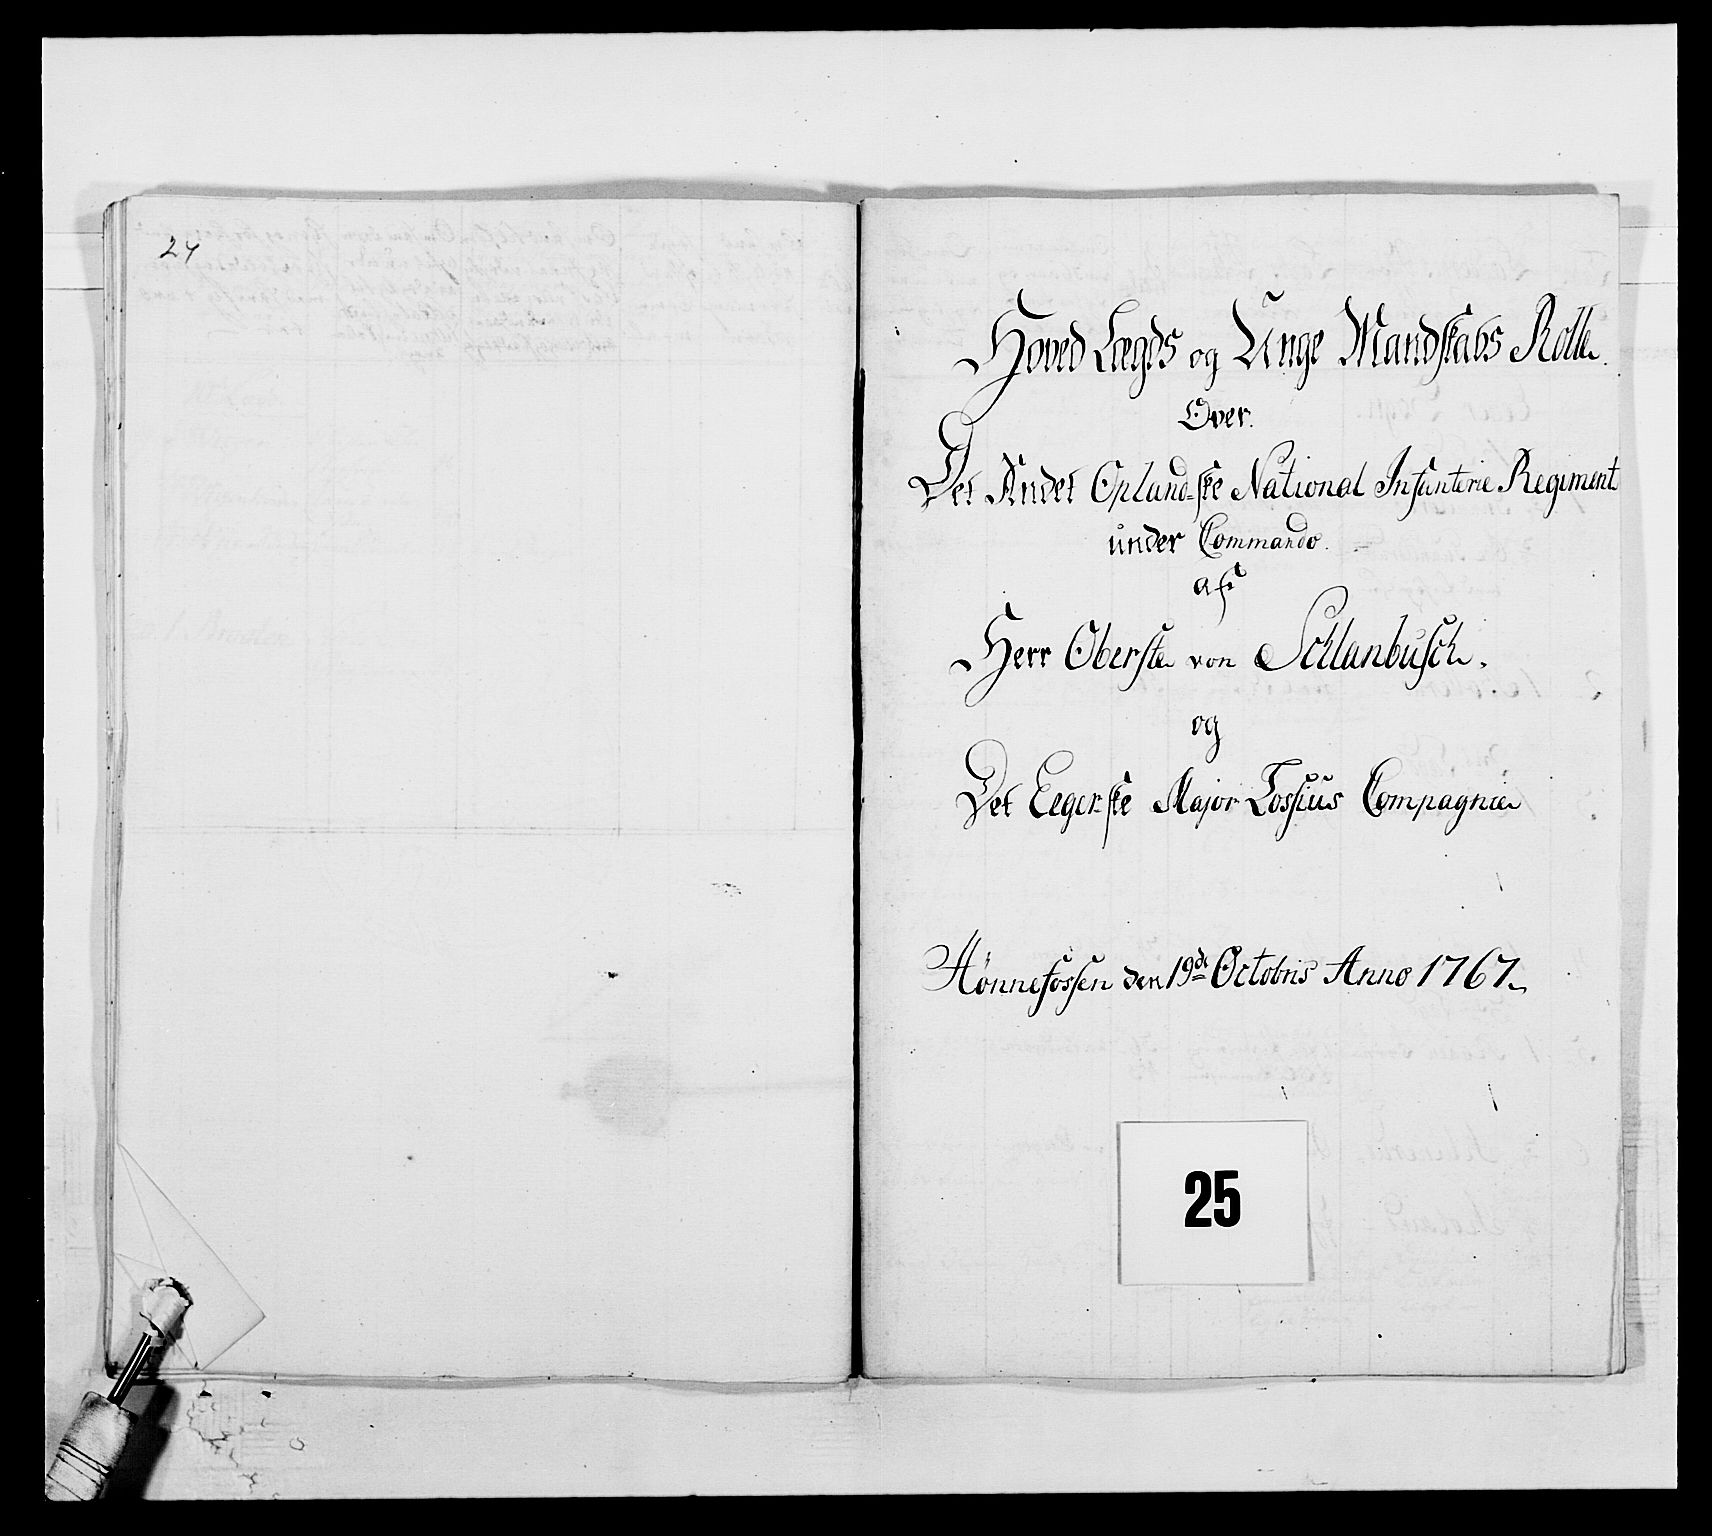 24
Hoved Lægds og Unge Mandskabs Rolle.
Over.
Det Andet Oplandske National Infanterie Regiment
under Commando.
af
Herr Oberste von Schlanbusch.
og
Det Eegerske Major Tossius Compagnie
Hønnefossen den 19de Octobris Anno 1767.
25